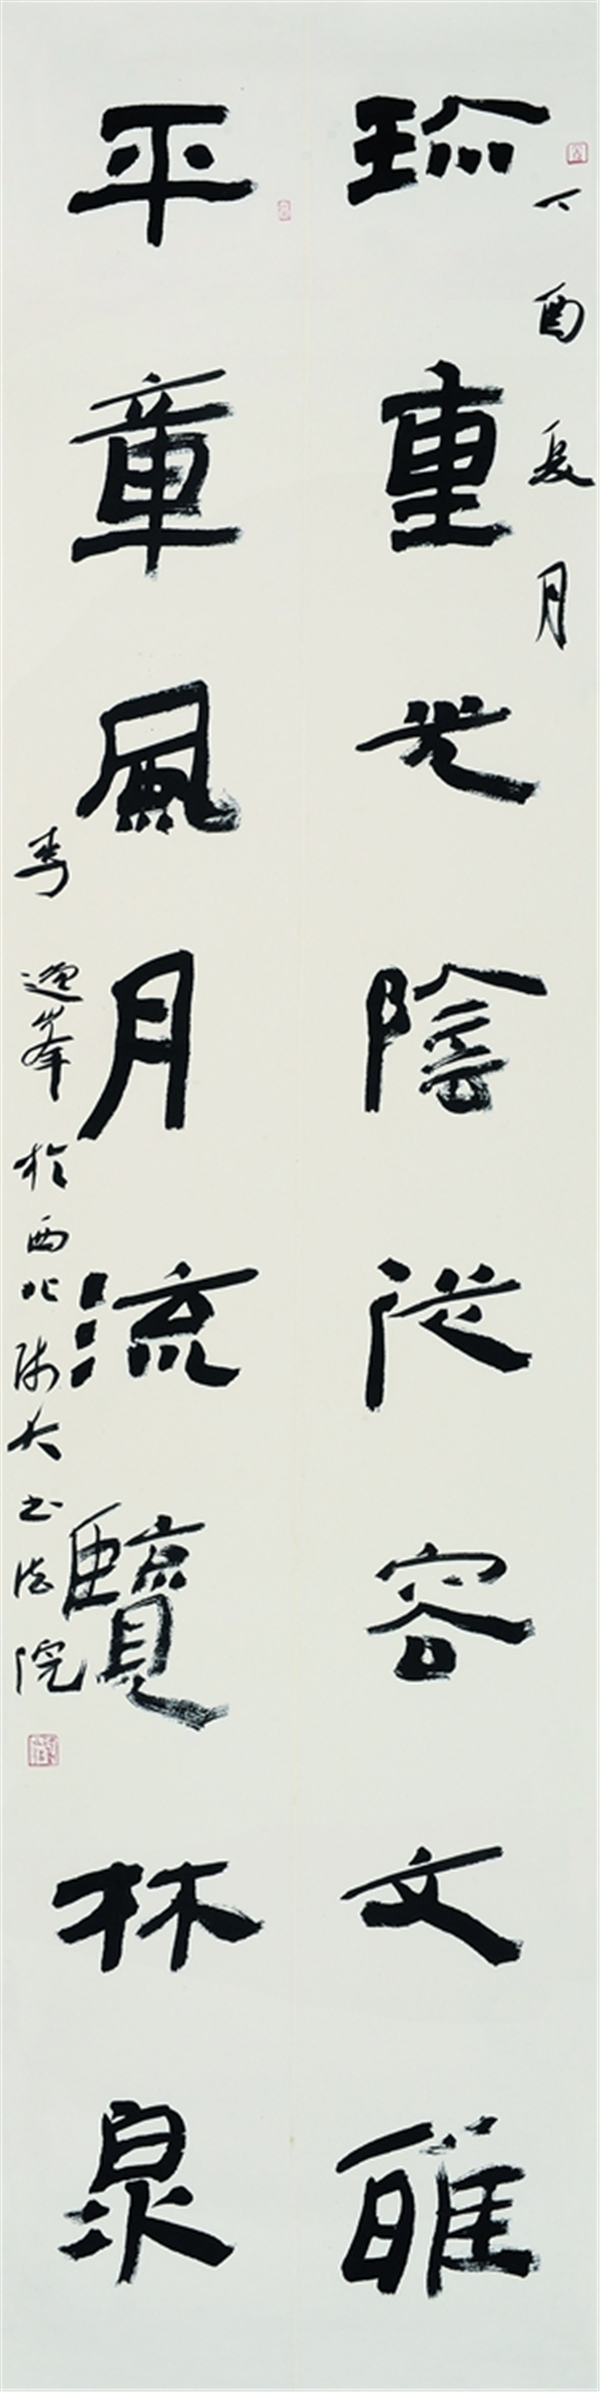 丁酉夏月
珎重光陰從容文雅
平章風月流覽林泉
李逸峯於西北師大书法院